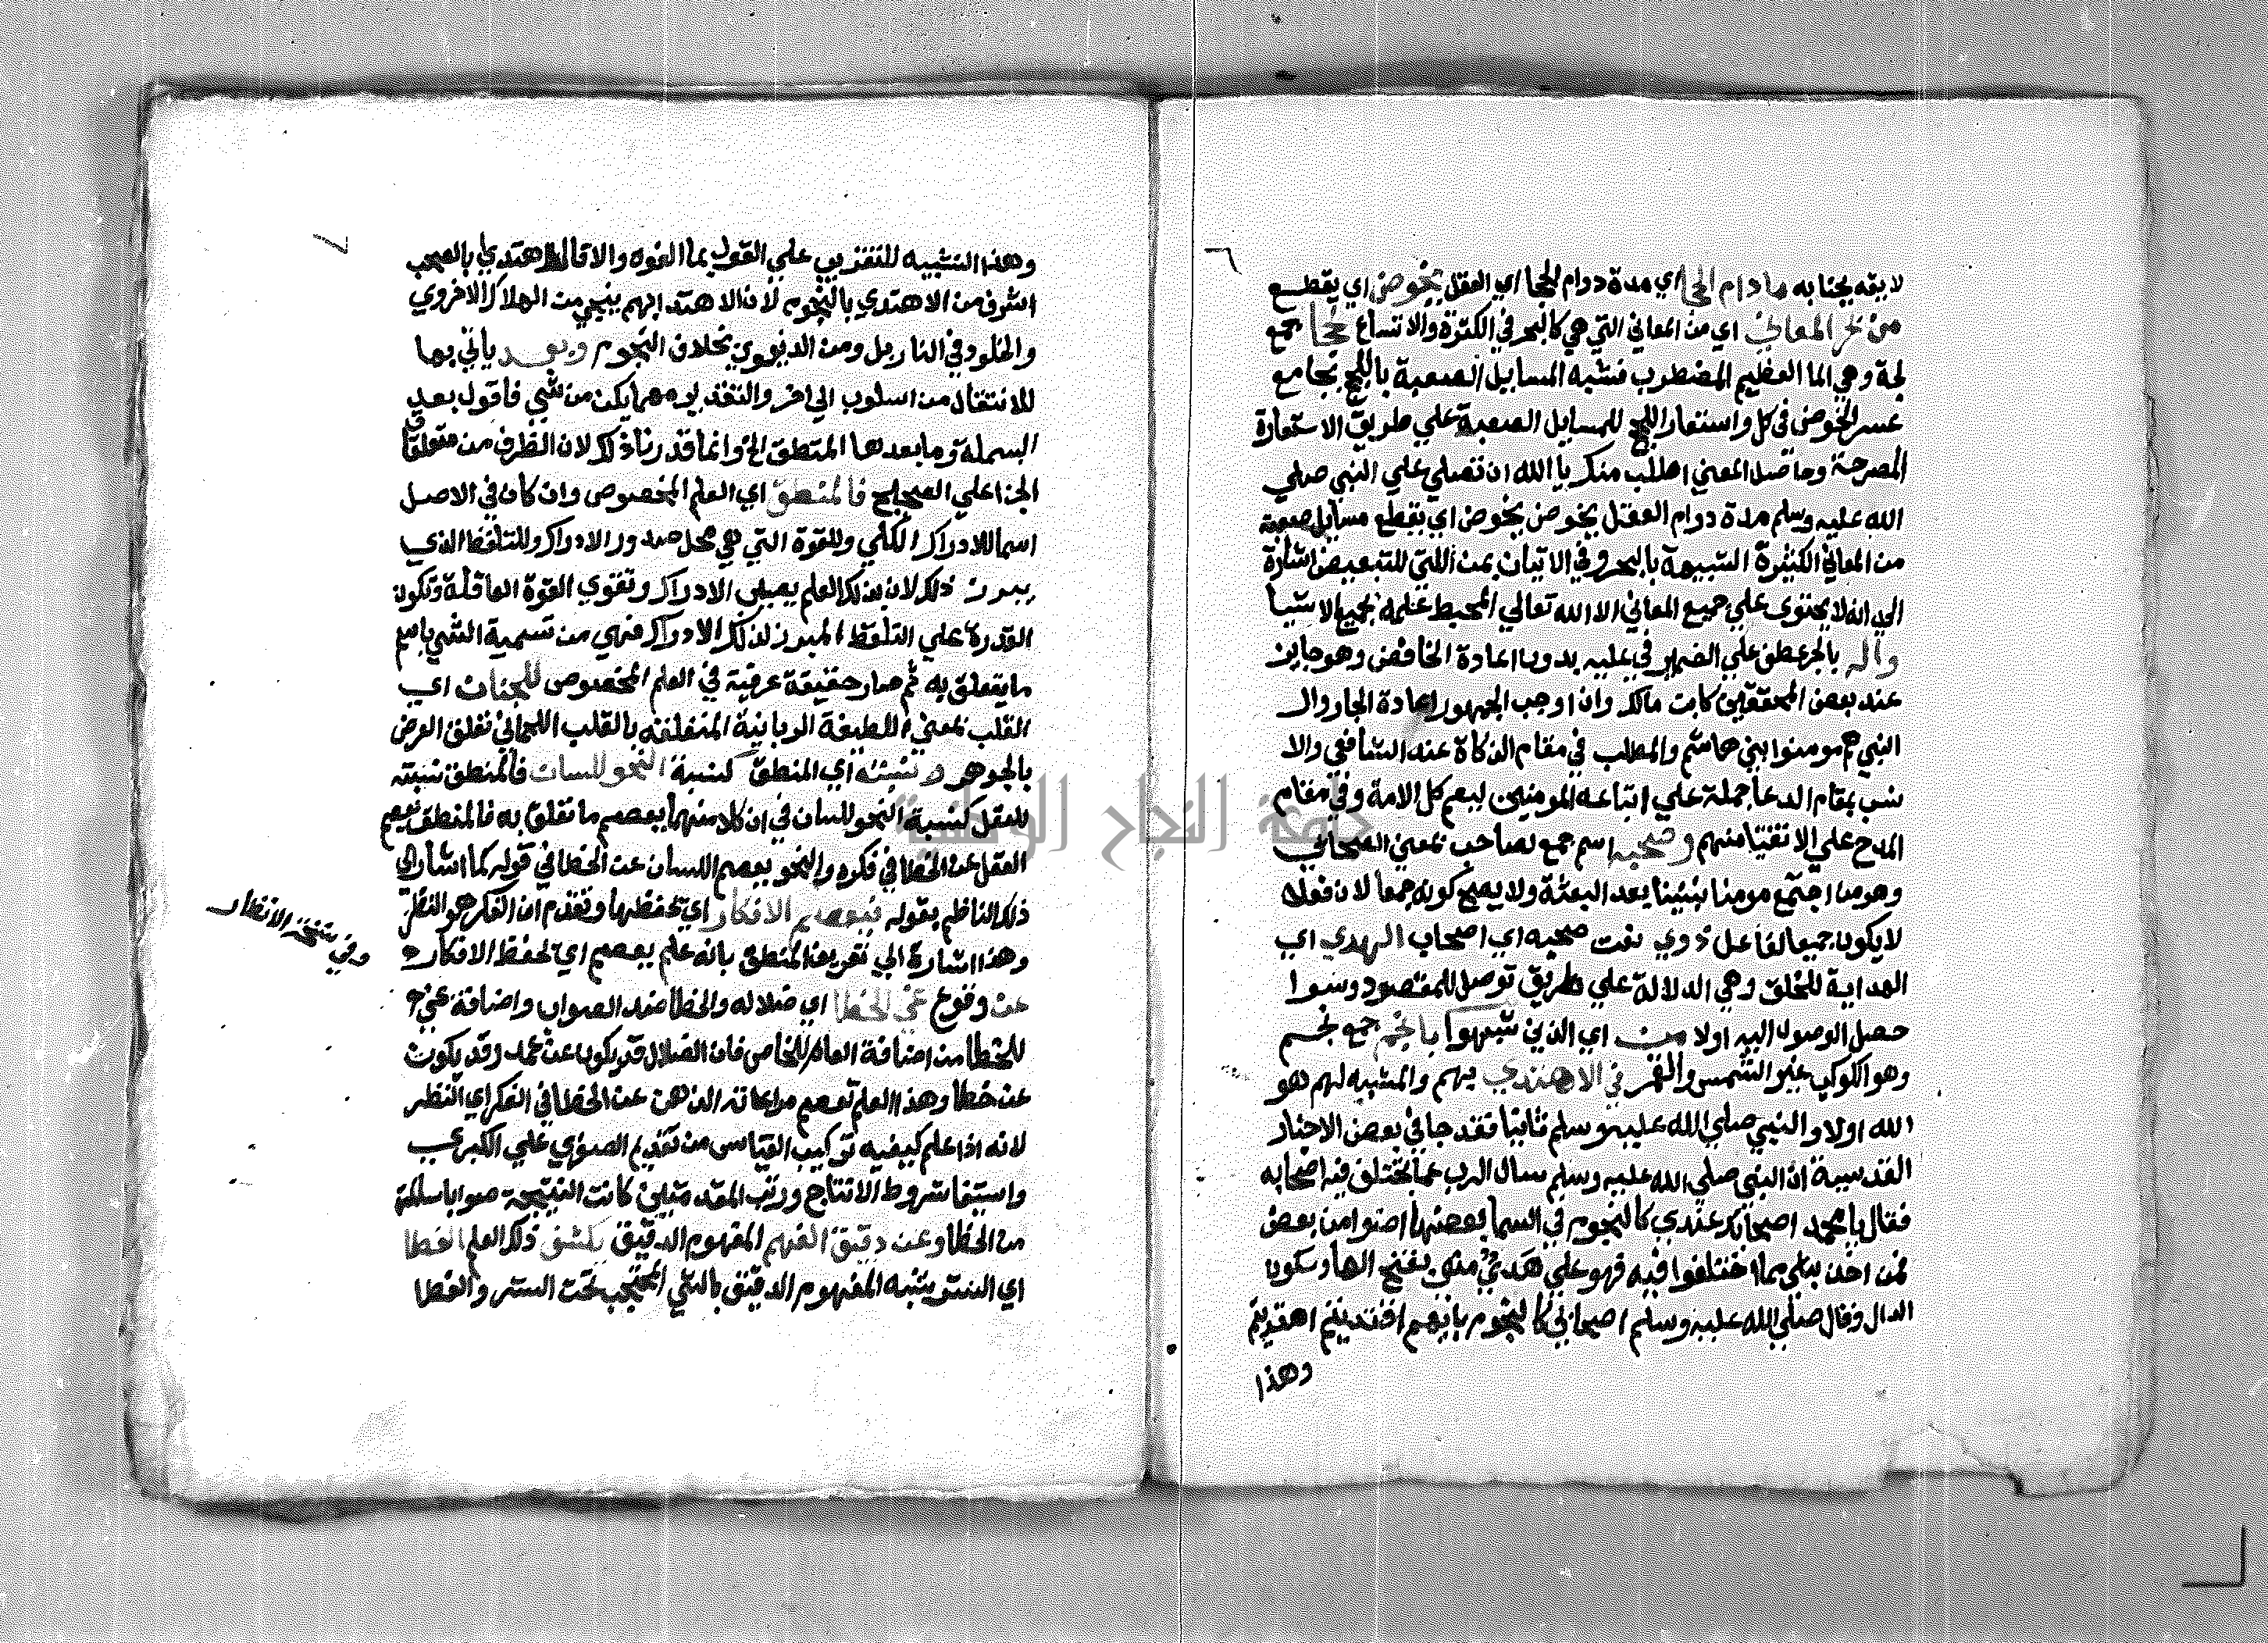 ٦
لايقه بجنابه مادام الحجا اي مدة دوام الحجا اي العقل يخوض اي يقطع
من بحر المعاني اي من المعاني التي هي كالبحر في الكثرة والاتساع لججا جمع
لجة وهي الما العظيم المضطرب فشبه المسايل الصعبة باللجج بجامع
عسر الخوض في كل واستعار اللجج للمسايل الصعبة علي طريق الاستعارة
المصرحة وحاصل المعني اطلب منك يا الله ان تصلي علي النبي صلي
الله عليه وسلم مدة دوام العقل يخوض يخوض اي يقطع مسايل صعبة
من المعاني الكثيرة الشبيهة بالبحر وفي الاتيان بمن اللتي للتبعيض اشارة
الي انه لا يحتوي علي جميع المعاني الا الله تعالي المحيط علمه بجميع الاشيا
واله بالجر عطف علي الضمير في عليه بدون اعادة الخافض وهو جايز
عند بعض المحققين كابن مالك وان اوجب الجمهور اعادة الجار وال
النبي هم مومنوا بني هاشم والمطلب في مقام الزكاة عند الشافعي والا
نسب بمقام الدعا حمله علي اتباعه المومنين ليعم كل الامة وفي مقام
المدح علي الاتقيا منهم وصحبه اسم جمع لصاحب بمعني الصحابي
وهو من اجتمع مومنا بنبينا بعد البعثة ولا يصح كونه جمعا لان فعلا
لا يكون جمعا لفاعل ذوي نعت صحبه اي اصحاب الهدي اي
الهداية للخلق وهي الدلالة علي طريق توصل للمقصود وسوا
حصل الوصول اليه اولا من اي الذين شبهوا بانجم جمع نجم
وهو الكوكب غير الشمس والقمر في الاهتدي بهم والمشبه لهم هو
الله اولا والنبي صلي الله عليه وسلم ثانيا فقد جا في بعض الاخبار
القدسية ان النبي صلي الله عليه وسلم سال الرب عما تختلف فيه اصحابه
فقال يا محمد اصحابك عندي كالنجوم في السما بعضها اضوا من بعض
فمن اخذ بشي مما اختلفوا فيه فهو علي هدي مني بفتح الها وسكون
الدال وقال صلي الله عليه وسلم اصحابي كالنجوم بايهم اقتديتم اهتديتم
وهذا
٧
وهذا التشبيه للتقريب علي القول بما القوه والا فالاهتدي بالصحب
اشرف من الاهتدي بالنجوم لان الاهتدا بهم ينجي من الهلاك الاخروي
والخلود في النار بل ومن الدنيوي بخلاف النجوم وبعد ياتي بها
للانتقال من اسلوب الي اخر والتقدير مهما يكن من شي فاقول بعد
البسملة وما بعدها المنطق الخ وانما قدرنا ذلك لان الظرف من متعلقات
الجزا علي الصحيح فالمنطق اي العلم المخصوص وان كان في الاصل
اسما للادراك الكلي وللقوة التي هي محل صدور الادراك وللتلفظ الذي
يبرز ذلك لان بذلك العلم يصيب الادراك وتقوي القوة العاقلة وتكون
القدرة علي التلفظ المبرز لذلك الادراك فهي من تسمية الشي باسم
ما يتعلق به ثم صار حقيقة عرفية في العلم المخصوص للجنان اي
القلب بمعني اللطيفة الربانية المتعلقة بالقلب اللحماني تعلق العرض
بالجوهر ونسبته اي المنطق كنسبة النحو للسان فالمنطق نسبته
للعقل كنسبة النحو للسان في ان كلا منهما يعصم ما تعلق به فالمنطق يعصم
العقل عن الخطا في فكره والنحو يعصم اللسان عن الخطا في قوله كما اشار الي
ذلك الناظم بقوله فيعصم الافكار اي يحفظها وتقدم ان الفكر هو النظر
وهذا اشارة الي تعريف المنطق بانه علم يعصم اي يحفظ الافكار
وفي نسخة الانظار
عن وقوع غي الخطا اي ضلاله والخطا ضد الصواب واضافة غي
للخطا من اضافة العام للخاص فان الضلال قد يكون عن عمد وقد يكون
عن خطا وهذا العلم تعصم مراعاته الذهن عن الخطا في الفكر اي النظر
لانه اذا علم كيفيه تركيب القياس من تقديم الصغري علي الكبري
واستيفا شروط الانتاج ورتب المقدمتين كانت النتيجة صوابا سالمة
من الخطا وعن دقيق الفهم المفهوم الدقيق يكشف ذلك العلم الغطا
اي الستر يشبه المفهوم الدقيق بالشي المحتجب تحت الستر والغطا
جامعة النجاح الوطنية